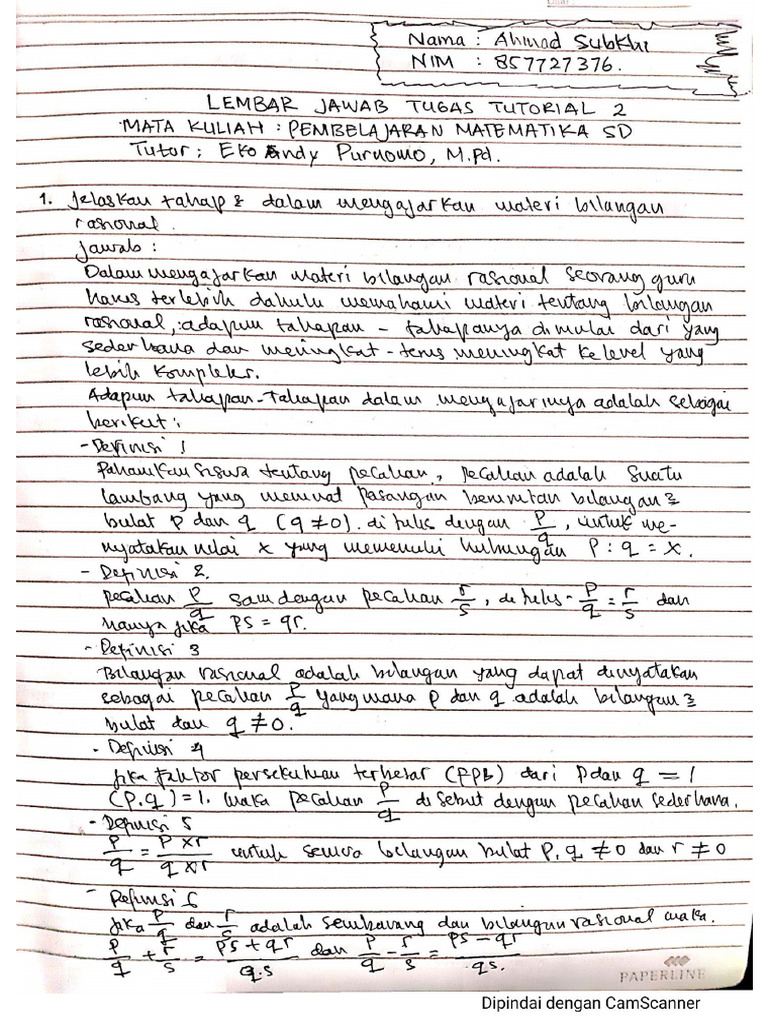 Nama : Ahmad Subkhi
NIM : 857727376.
LEMBAR JAWAB TUGAS TUTORIAL 2
MATA KULIAH : PEMBELAJARAN MATEMATIKA SD
Tutor : Eko Andy Purnomo, M.Pd.
1. Jelaskan tahap2 dalam mengajarkan materi bilangan
rasional.
Jawab :
Dalam mengajarkan materi bilangan rasional seorang guru
harus terlebih dahulu memahami materi tentang bilangan
rasional, adapun tahapan - tahapanya dimulai dari yang
sederhana dan meningkat - terus meningkat ke level yang
lebih kompleks.
Adapun tahapan-tahapan dalam mengajarinya adalah sebagai
berikut :
- Definisi 1
Pahamkan siswa tentang pecahan, pecahan adalah suatu
lambang yang memuat pasangan berurutan bilangan2
bulat p dan q (q ≠ 0). di tulis dengan p/q, untuk me-
nyatakan nilai x yang memenuhi hubungan p : q = x.
- Definisi 2.
pecahan p/q sam dengan pecahan r/s, di tulis - p/q = r/s dan
hanya jika ps = qr.
- Definisi 3
Bilangan rasional adalah bilangan yang dapat dinyatakan
sebagai pecahan p/q yang mana p dan q adalah bilangan2
bulat dan q ≠ 0.
- Definisi 4
Jika faktor persekutuan terbesar (FPB) dari p dan q = 1
(p.q) = 1. maka pecahan p/q di sebut dengan pecahan sederhana.
- Definisi 5
p/q = p x r/q x r untuk semua bilangan bulat p, q ≠ 0 dan r ≠ 0
- Definisi 6
Jika p/q dan r/s adalah sembarang dan bilangan rasional maka.
p/q + r/s = ps + qr/q.s dan p/q - r/s = ps - qr/qs.
PAPERLINE
Dipindai dengan CamScanner